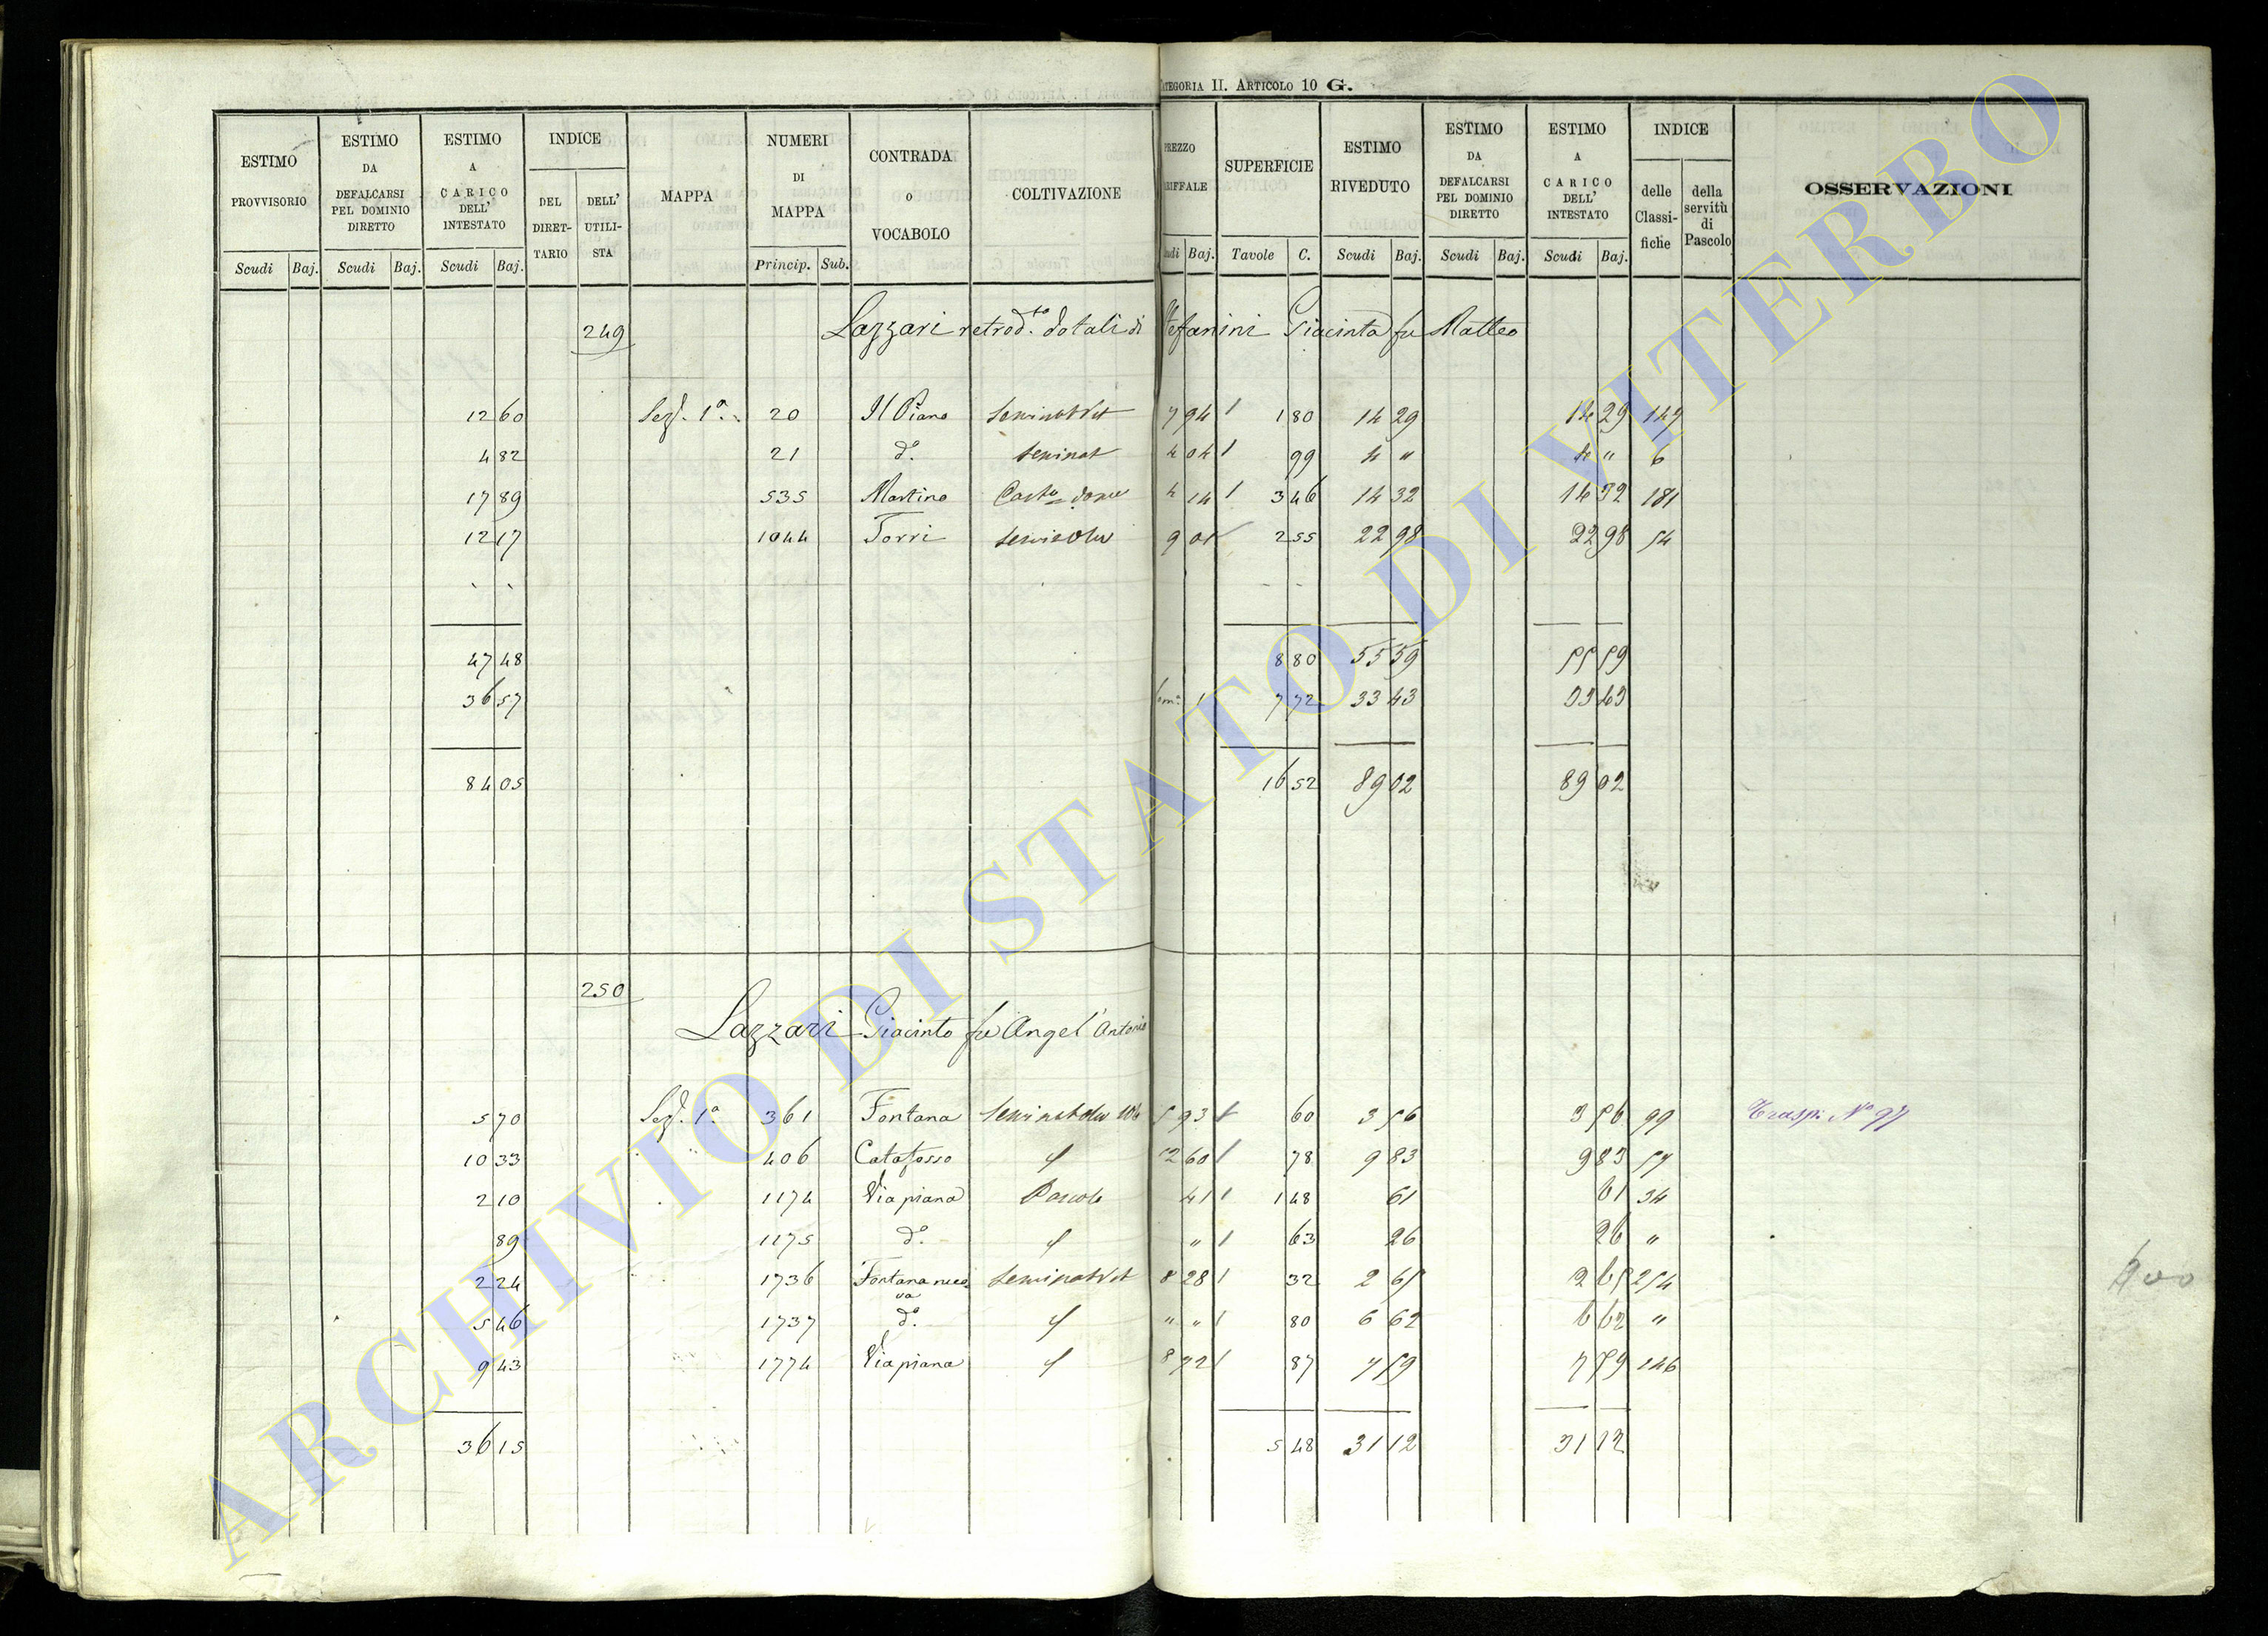 CATEGORIA II. ARTICOLO 10 G.
ESTIMO PROVVISORIO Scudi Baj.
ESTIMO DA DEFALCARSI PEL DOMINIO DIRETTO Scudi Baj.
ESTIMO A CARICO DELL' INTESTATO Scudi Baj.
INDICE DEL DIRETTARIO DELL' UTILISTA
MAPPA
NUMERI DI MAPPA Princip. Sub.
CONTRADA o VOCABOLO
COLTIVAZIONE
PREZZO TARIFFALE Scudi Baj.
SUPERFICIE Tavole C.
ESTIMO RIVEDUTO Scudi Baj.
ESTIMO DA DEFALCARSI PEL DOMINIO DIRETTO Scudi Baj.
ESTIMO A CARICO DELL' INTESTATO Scudi Baj.
INDICE delle Classifiche della servitù di Pascolo
OSSERVAZIONI
249 Lazzari retrod.to dotali di Stefanini Giacinta fu Matteo
12 60 Sez. 1a 20 Il Piano SeminatVit 7 94 1 80 14 29 14 29 147
4 82 21 do. Seminat 4 04 99 4 " 4 " 6
17 89 535 Martino 4 14 3 46 14 32 14 32 181
12 17 1044 Torri 9 01 2 55 22 98 22 98 54
47 48 8 80 55 59 55 59
36 57 7 72 33 43 33 43
84 05 16 52 89 02 89 02
250
Lazzari Giacinto fu Angel'Antonio
5 70 Sez. 1a 361 Fontana 5 93 60 3 56 3 56 99 Trasp. No 97
10 33 406 Catafosso 12 60 78 9 83 9 83 57
2 10 1174 Via piana Pascolo 41 1 48 61 61 34
89 1175 do. " 63 26 26 "
2 24 1736 Fontana nuova SeminatVit 8 28 32 2 65 2 65 254
5 46 1737 do. " " 80 6 62 6 62 "
9 43 1774 Via piana 8 72 87 7 59 7 59 146
36 15 5 48 31 12 31 12
ARCHIVIO DI STATO DI VITERBO